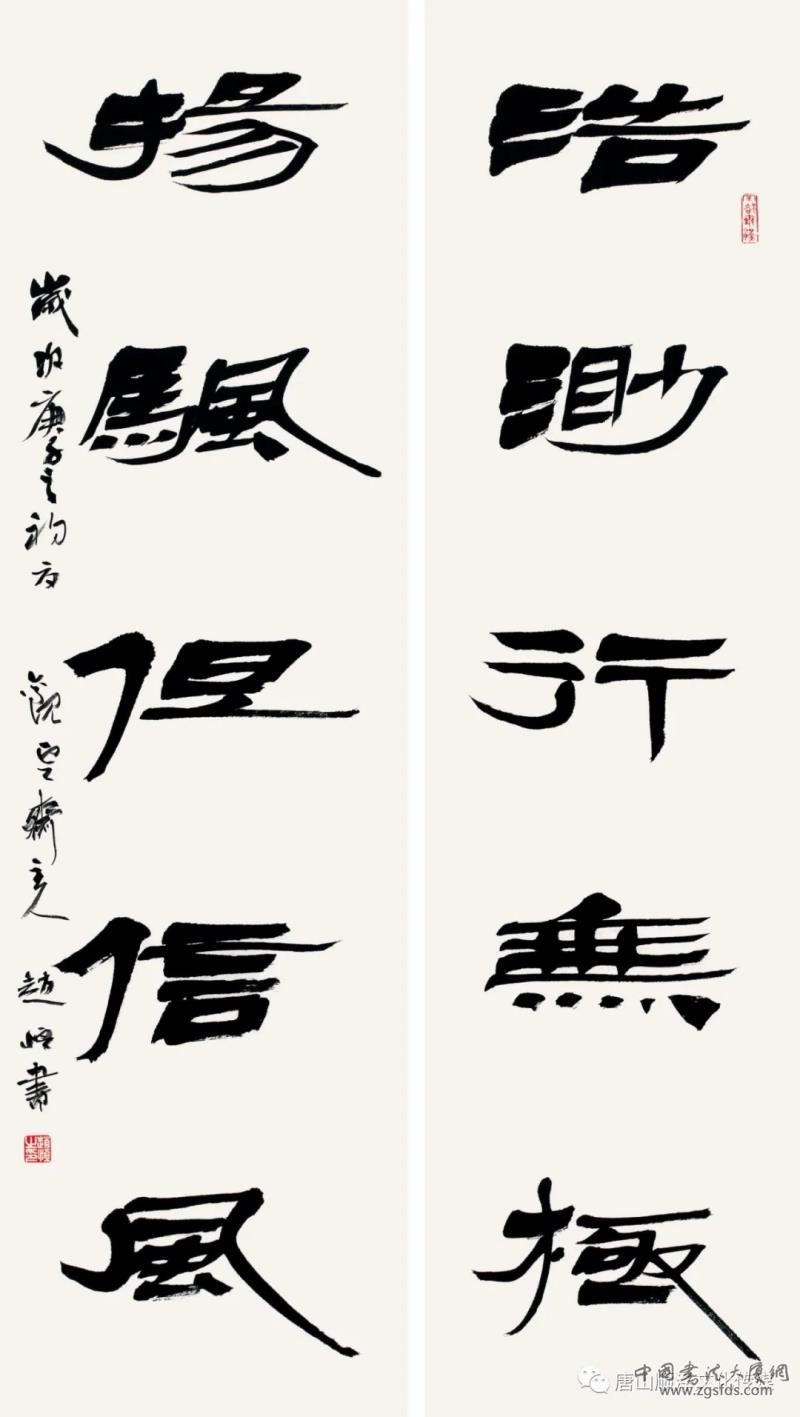 浩渺行無極
揚颿但信風
歲次庚子之初夏 觀 齋主人 趙 書
中国書法大廈網
唐山
www.zgsfds.com